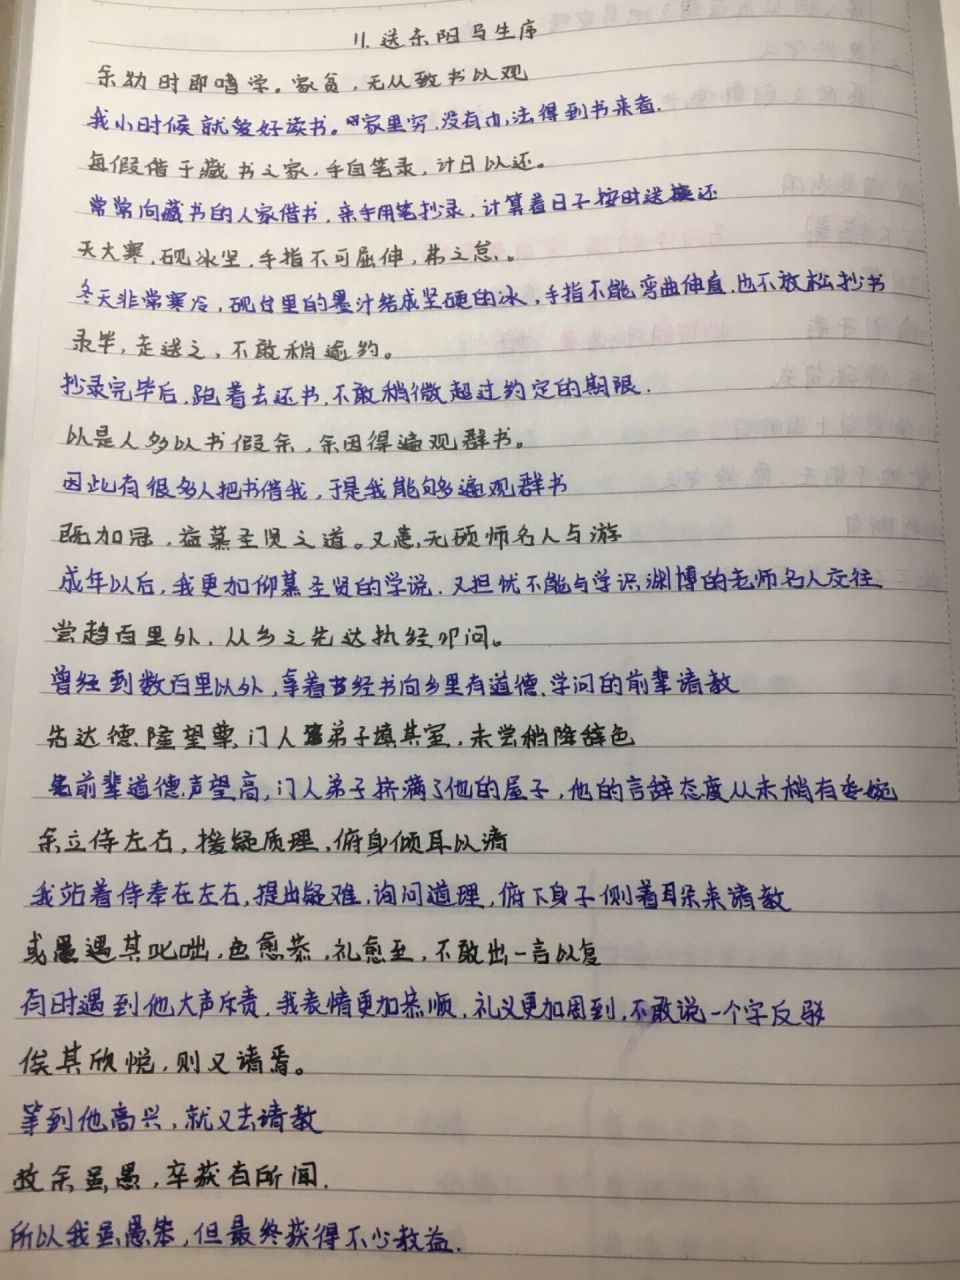 11. 送东阳马生序
余幼时即嗜学。家贫，无从致书以观
我小时候就爱好读书。家里穷，没有办法得到书来看.
每假借于藏书之家，手自笔录，计日以还。
常常向藏书的人家借书，亲手用笔抄录，计算着日子按时送还
天大寒，砚冰坚，手指不可屈伸，弗之怠。
冬天非常寒冷，砚台里的墨汁结成坚硬的冰，手指不能弯曲伸直，也不放松抄书
录毕，走送之，不敢稍逾约。
抄录完毕后，跑着去还书，不敢稍微超过约定的期限.
以是人多以书假余，余因得遍观群书。
因此有很多人把书借我，于是我能够遍观群书
既加冠，益慕圣贤之道。又患，无硕师名人与游
成年以后，我更加仰慕圣贤的学说，又担忧不能与学识渊博的老师名人交往
尝趋百里外，从乡之先达执经叩问。
曾经到数百里以外，拿着经书向乡里有道德、学问的前辈请教
先达德隆望尊，门人弟子填其室，未尝稍降辞色
前辈道德声望高，门人弟子挤满了他的屋子，他的言辞态度从未稍有委婉
余立侍左右，援疑质理，俯身倾耳以请
我站着侍奉在左右，提出疑难，询问道理，俯下身子侧着耳朵来请教
或遇其叱咄，色愈恭，礼愈至，不敢出一言以复
有时遇到他大声斥责，我表情更加恭顺，礼义更加周到，不敢说一个字反驳
俟其欣悦，则又请焉。
等到他高兴，就又去请教
故余虽愚，卒获有所闻.
所以我虽愚笨，但最终获得不少教益.